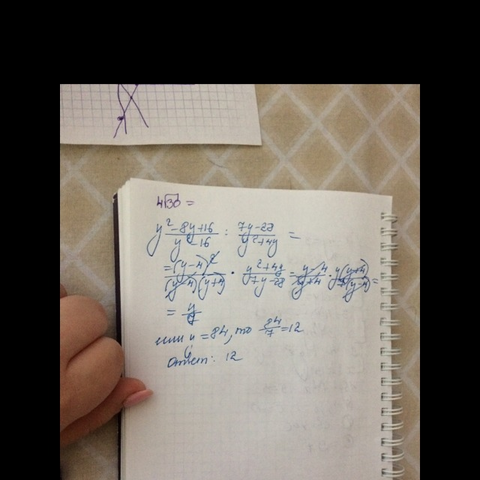 4√30 =
y²-8y+16 / y²-16 : 7y-28 / y²+4y =
= (y-4)² / (y-4)(y+4) · y²+4y / 7y-28 = y-4 / y+4 · y(y+4) / 7(y-4) =
= y / 7
если y = 84, то 84/7 = 12
Ответ: 12